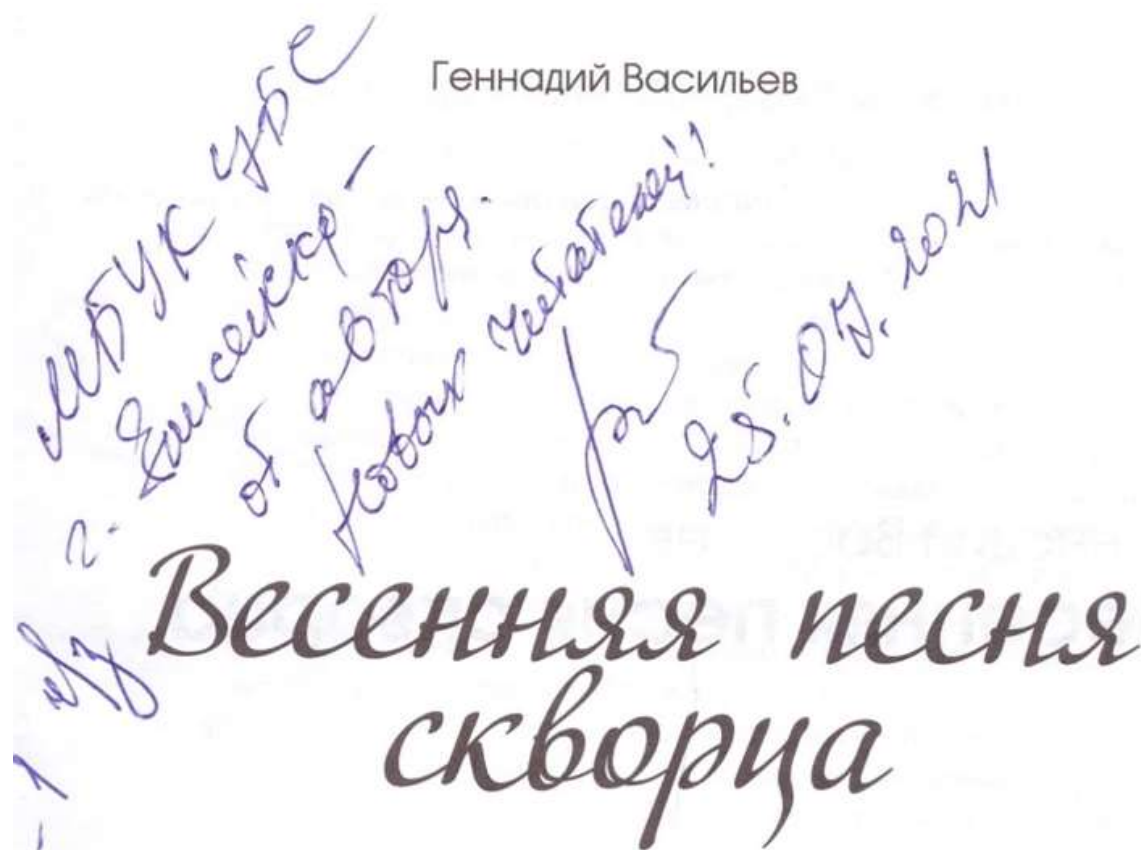 Геннадий Васильев
МБУК ЦБС
г. Енисейска –
от автора.
Новых читателей!
28.07.2021
Весенняя песня
скворца